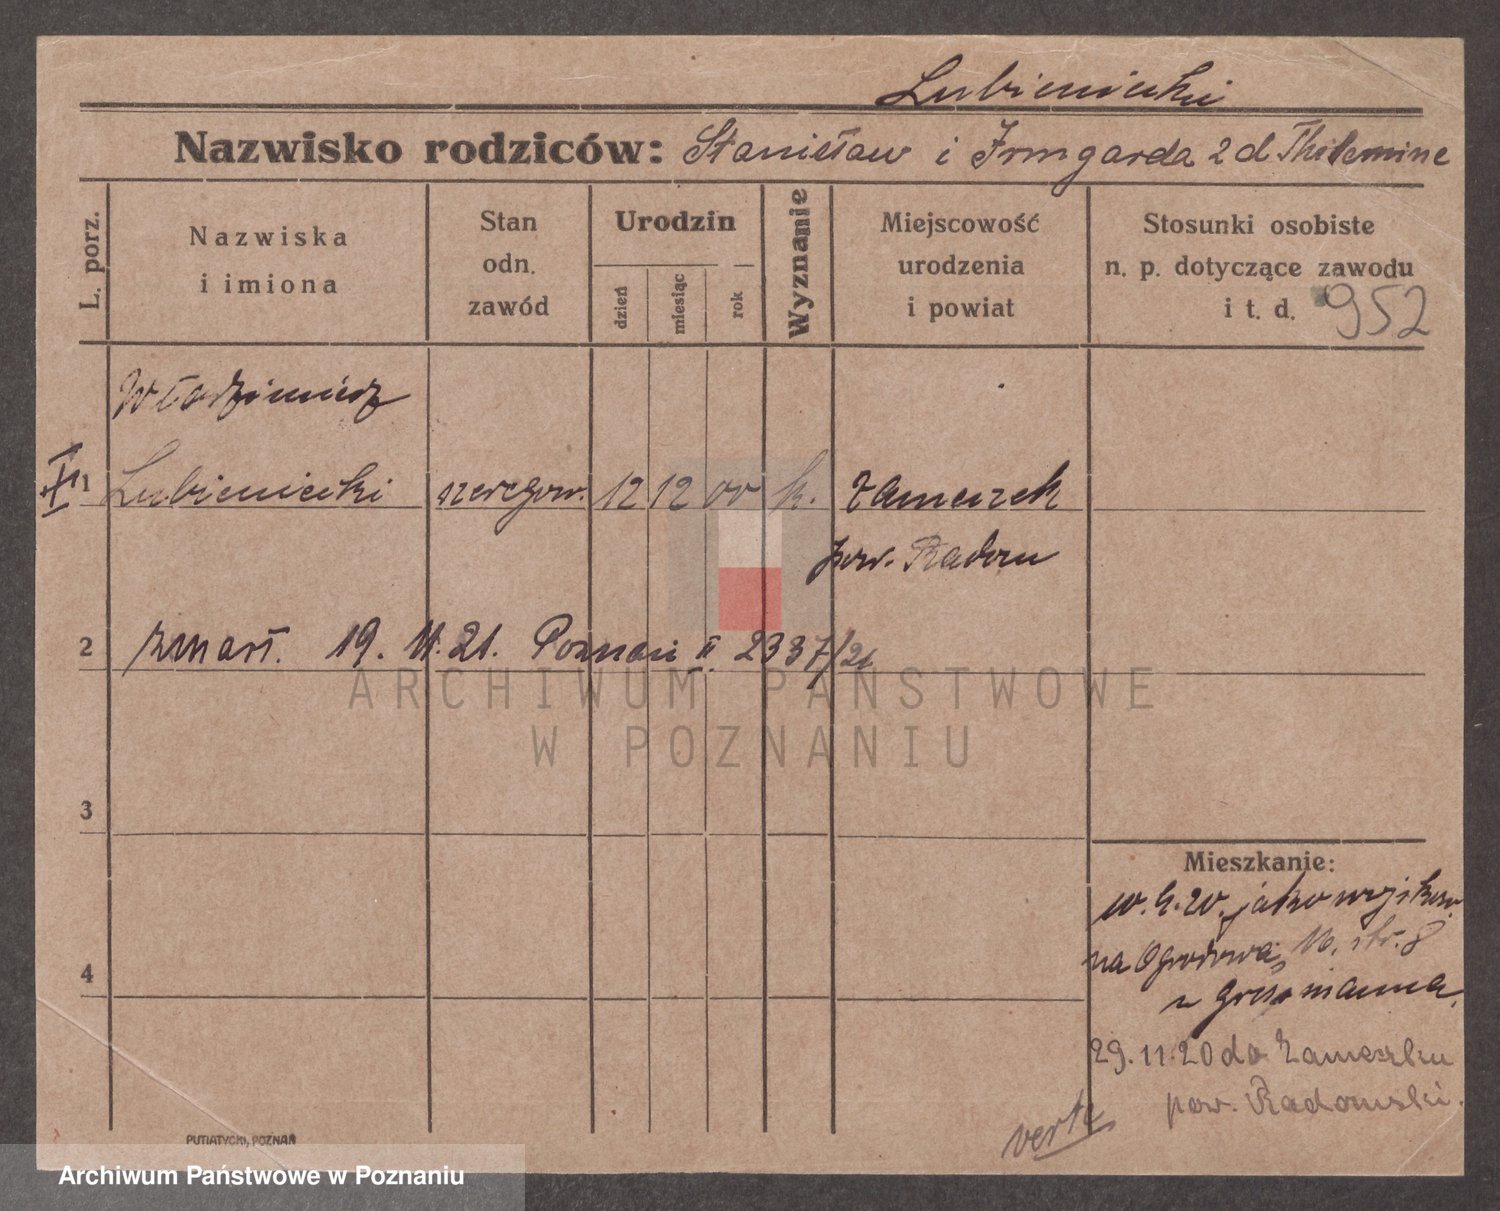 Lubieniecki
Nazwisko rodziców: Stanisław i Irmgarda 2 d
L. porz.
Nazwiska
i imiona
Stan
odn.
zawód
Urodzin
dzień
miesiąc
rok
Wyznanie
Miejscowość
urodzenia
i powiat
Stosunki osobiste
n. p. dotyczące zawodu
i t. d. 952
Włodzimierz
1 Lubieniecki szeregow. 12 12 00 k. Zameczek
pow. Radom
2 zmarł. 19. 11. 21. Poznań II. 2337/21
ARCHIWUM PAŃSTWOWE
W POZNANIU
3
4
Mieszkanie:
10. 4. 20. jako wojskow.
na Ogrodowa 16. str. 8
29.11.20 do Zameczku
pow. Radomski.
verte
PUTIATYCKI, POZNAŃ
Archiwum Państwowe w Poznaniu